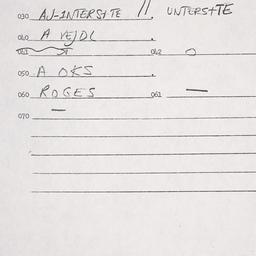 030 AN-INTERSITE //. UNTERSITE
040 A VEJDL .
041 042 O
050 A OKS .
060 ROGES 061 —
070 —